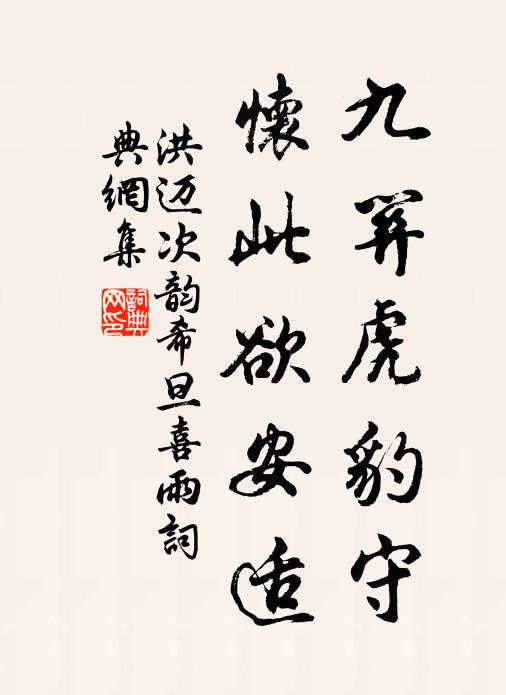 九關虎豹守
懷此欲安适
洪迈次韵希旦喜雨詞
典網集
詞典网印